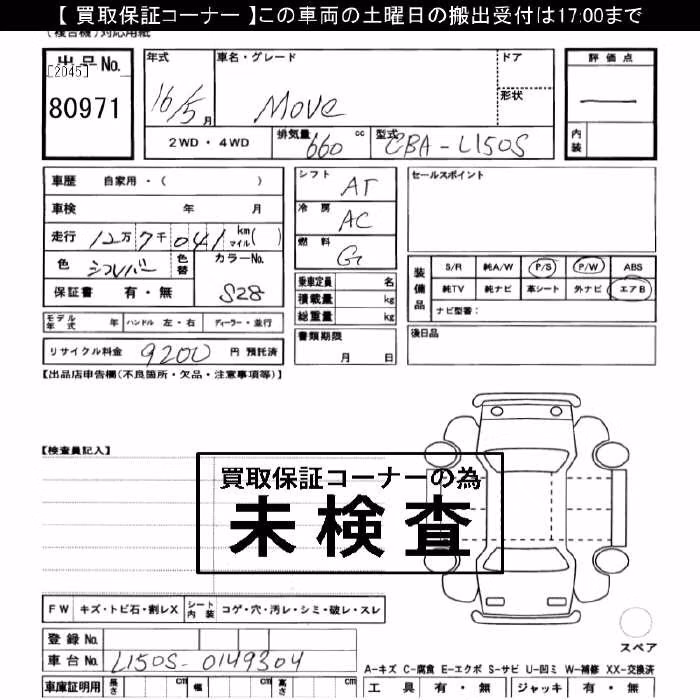 【 買取保証コーナー 】この車両の土曜日の搬出受付は17:00まで
(複合機)対応用紙
出品No.
[2045]
80971
年式 車名・グレード ドア 評価点
16/5月 MOVE 形状 —
2WD・4WD 排気量 660 cc 型式 CBA-L150S 内装
車歴 自家用・( ) シフト AT セールスポイント
車検 年 月 冷房 AC
走行 12万7千041 km マイル( ) 燃料 G
色 シルバー 色替 カラーNo. S28
装備品 S/R 純A/W P/S P/W ABS
保証書 有・無 純TV 純ナビ 革シート 外ナビ エアB
乗車定員 名 ナビ型番:
積載量 kg
総重量 kg
モデル年式 年 ハンドル 左・右 ディーラー・並行
書類期限 月 日 後日品
リサイクル料金 9200 円 預託済
【出品店申告欄(不良箇所・欠品・注意事項等)】
【検査員記入】
買取保証コーナーの為
未検査
FW キズ・トビ石・割レX シート内装 コゲ・穴・汚レ・シミ・破レ・スレ
登録No.
スペア
車台No. L150S-0149304
A-キズ C-腐食 E-エクボ S-サビ U-凹ミ W-補修 XX-交換済
車庫証明用 長さ cm 幅 cm 高さ cm 工具 有・無 ジャッキ 有・無